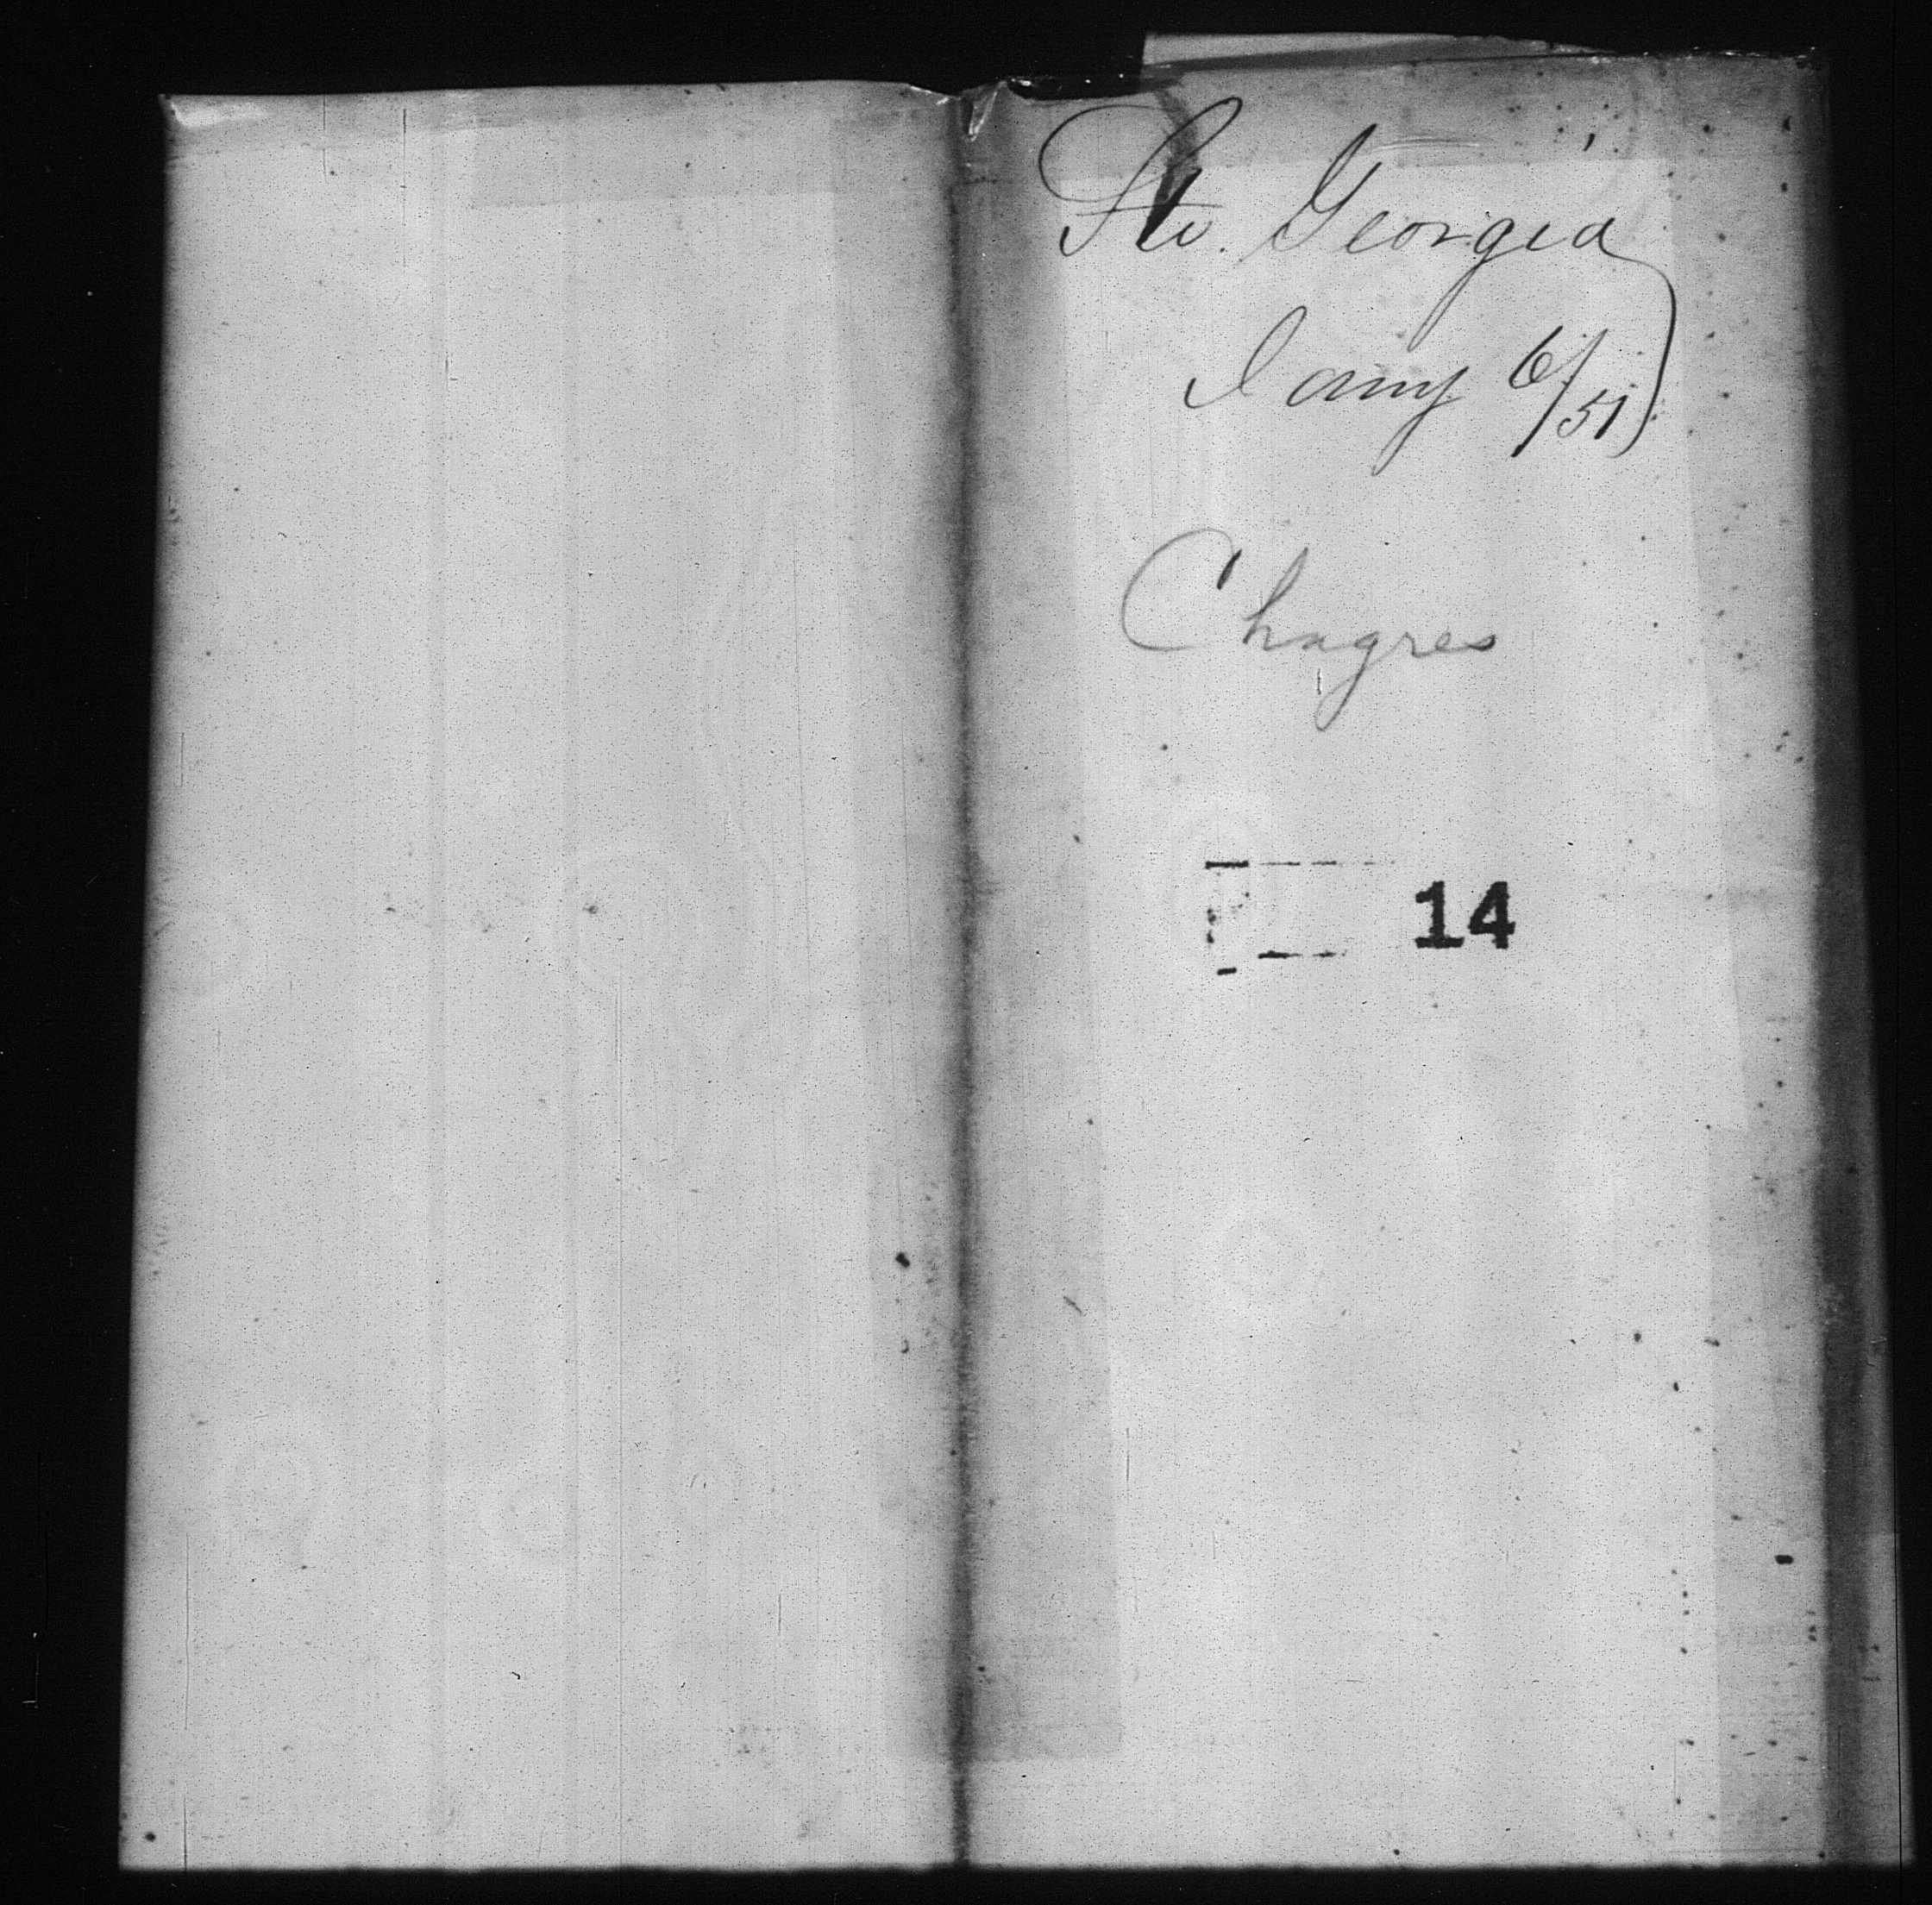 Str. Georgia
Jany 6/51
Chagres
14